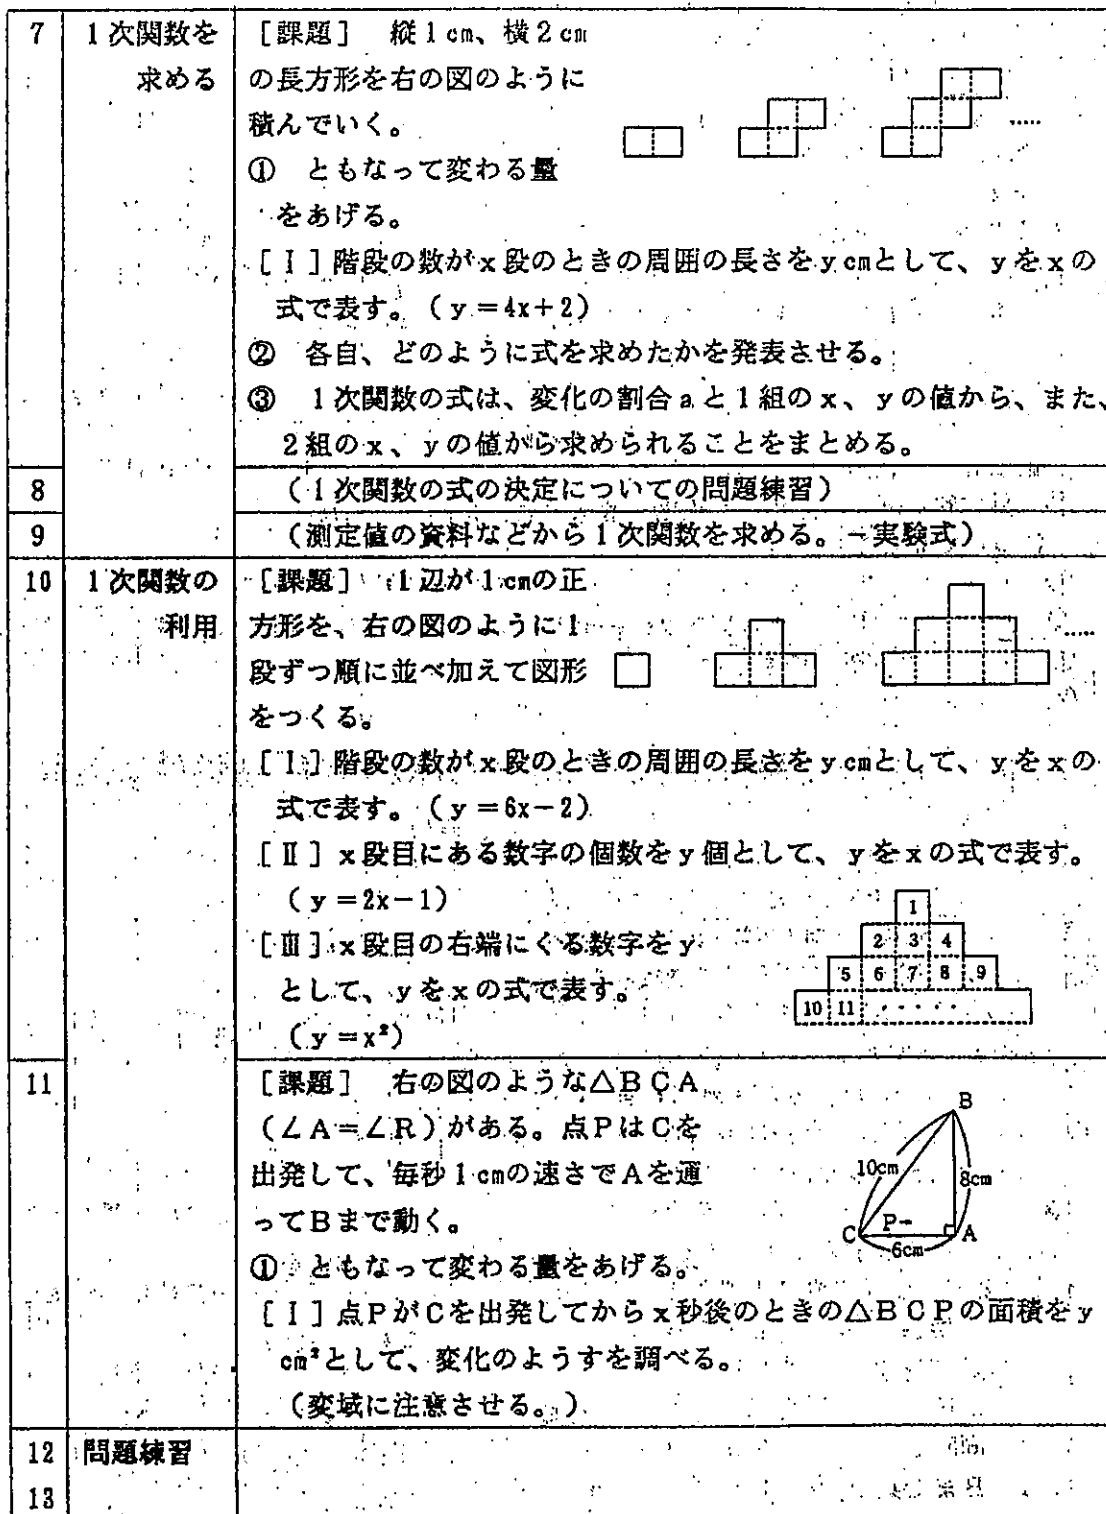 7 1次関数を [課題] 縦1cm、横2cm
求める の長方形を右の図のように
積んでいく。
① ともなって変わる量
をあげる。
[Ⅰ]階段の数がx段のときの周囲の長さをycmとして、yをxの
式で表す。(y=4x+2)
② 各自、どのように式を求めたかを発表させる。
③ 1次関数の式は、変化の割合aと1組のx、yの値から、また、
2組のx、yの値から求められることをまとめる。
8 (1次関数の式の決定についての問題練習)
9 (測定値の資料などから1次関数を求める。―実験式)
10 1次関数の [課題] 1辺が1cmの正
利用 方形を、右の図のように1
段ずつ順に並べ加えて図形
をつくる。
[Ⅰ]階段の数がx段のときの周囲の長さをycmとして、yをxの
式で表す。(y=6x-2)
[Ⅱ]x段目にある数字の個数をy個として、yをxの式で表す。
(y=2x-1)
[Ⅲ]x段目の右端にくる数字をy
として、yをxの式で表す。
(y=x²)
1
2 3 4
5 6 7 8 9
10 11 ・・・・・
11 [課題] 右の図のような△BCA
(∠A=∠R)がある。点PはCを
出発して、毎秒1cmの速さでAを通
ってBまで動く。
B
10cm
8cm
C P→ A
6cm
① ともなって変わる量をあげる。
[Ⅰ]点PがCを出発してからx秒後のときの△BCPの面積をy
cm²として、変化のようすを調べる。
(変域に注意させる。)
12 問題練習
13